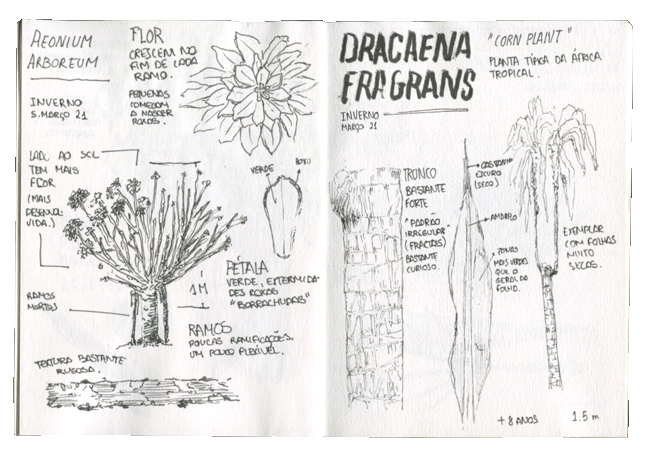 AEONIUM
ARBOREUM
INVERNO
5. MARÇO 21
FLOR
CRESCEM NO
FIM DE CADA
RAMO.
PEQUENAS
COMEÇAM
A NASCER
ROXAS.
LADO AO SOL
TEM MAIS
FLOR
(MAIS
DESENVOL-
VIDA.)
VERDE
ROXO
PÉTALA
VERDE, EXTERMIDA-
DES ROXAS
"BORRACHUDAS"
1M
RAMOS
MORTOS
RAMOS
POUCAS RAMIFICAÇÕES.
UM POUCO FLEXÍVEL.
TEXTURA BASTANTE
RUGOSA.
DRACAENA
FRAGRANS
INVERNO
MARÇO 21
"CORN PLANT"
PLANTA TÍPICA DA ÁFRICA
TROPICAL.
TRONCO
BASTANTE
FORTE
"PADRÃO
IRREGULAR
(FRACTAIS)
BASTANTE
CURIOSO.
ESCURO
(SECO)
AMARELO
ZONAS
MAIS VERDES
QUE O
GERAL DA
FOLHA.
EXEMPLAR
COM FOLHAS
MUITO
SECAS.
+ 8 ANOS
1.5 m